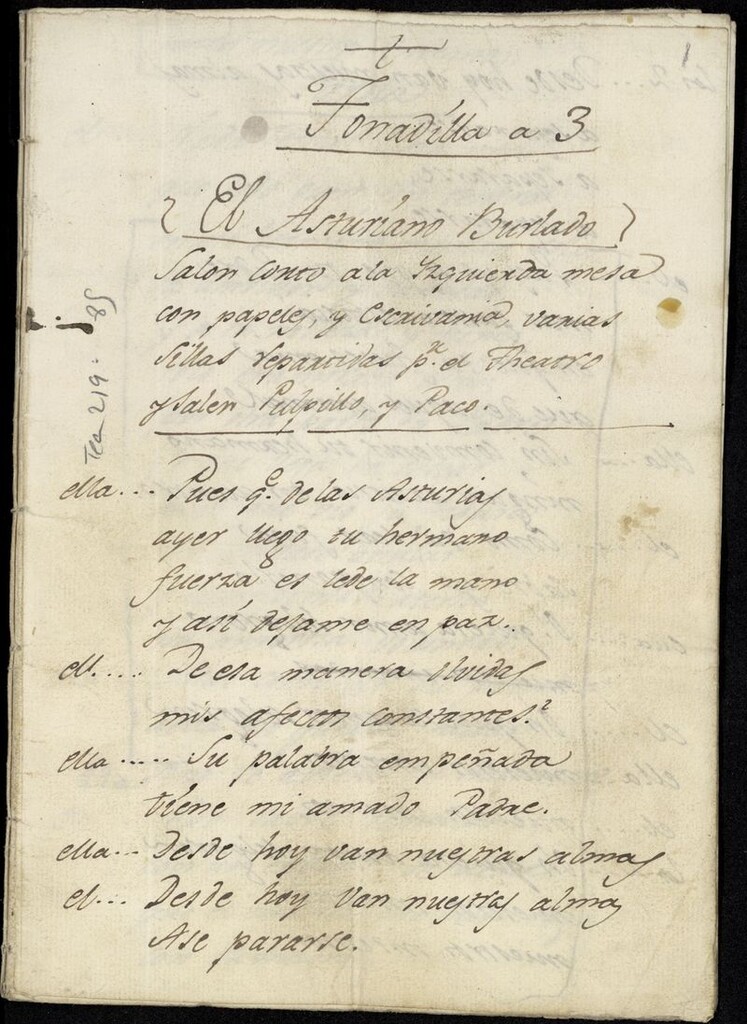 1
Tonadilla a 3
El Asturiano Burlado
Salon corto a la Yzquierda mesa
con papeles, y escrivania, varias
sillas repartidas pr. el Theatro
y salen Pulpillo, y Paco.
Tea 219-85
ella... Pues qe. de las Asturias
ayer llego tu hermano
fuerza es lede la mano
y asi dejame en paz..
el.... De esa manera olvidas
mis afectos constantes.
ella..... Su palabra empeñada
tiene mi amado Padre.
ella... Desde hoy van nuestras almas
el... Desde hoy van nuestras almas
Ase pararse.